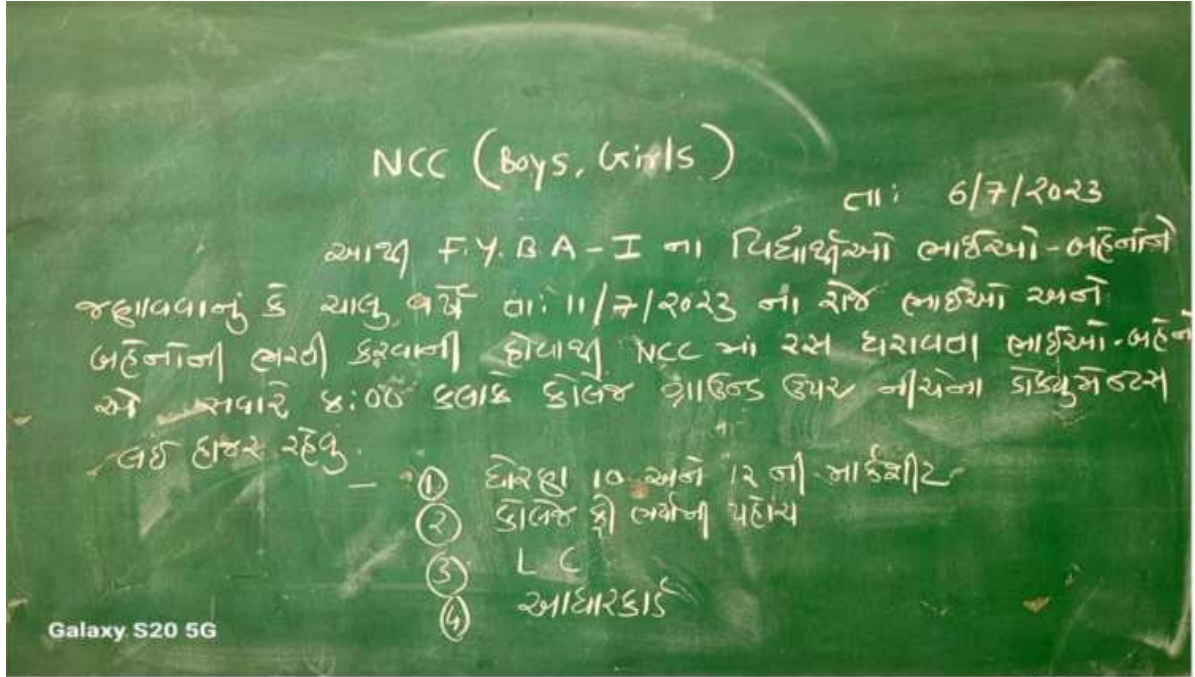 NCC (Boys, Girls)
તા: 6/7/૨૦૨૩
આથી F.Y.B.A-I ના વિદ્યાર્થીઓ ભાઈઓ-બહેનોને
જણાવવાનું કે ચાલુ વર્ષે તા: ૧૧/૭/૨૦૨૩ ના રોજ ભાઈઓ અને
બહેનોની ભરતી કરવાની હોવાથી NCC માં રસ ધરાવતા ભાઈઓ-બહેનો
એ સવારે ૪:૦૦ કલાકે કોલેજ ગ્રાઉન્ડ ઉપર નીચેના ડોક્યુમેન્ટસ
લઈ હાજર રહેવું.
① ધોરણ ૧૦ અને ૧૨ ની માર્કશીટ
② કોલેજ ફી ભર્યાની પહોંચ
③ L C
④ આધારકાર્ડ
Galaxy S20 5G